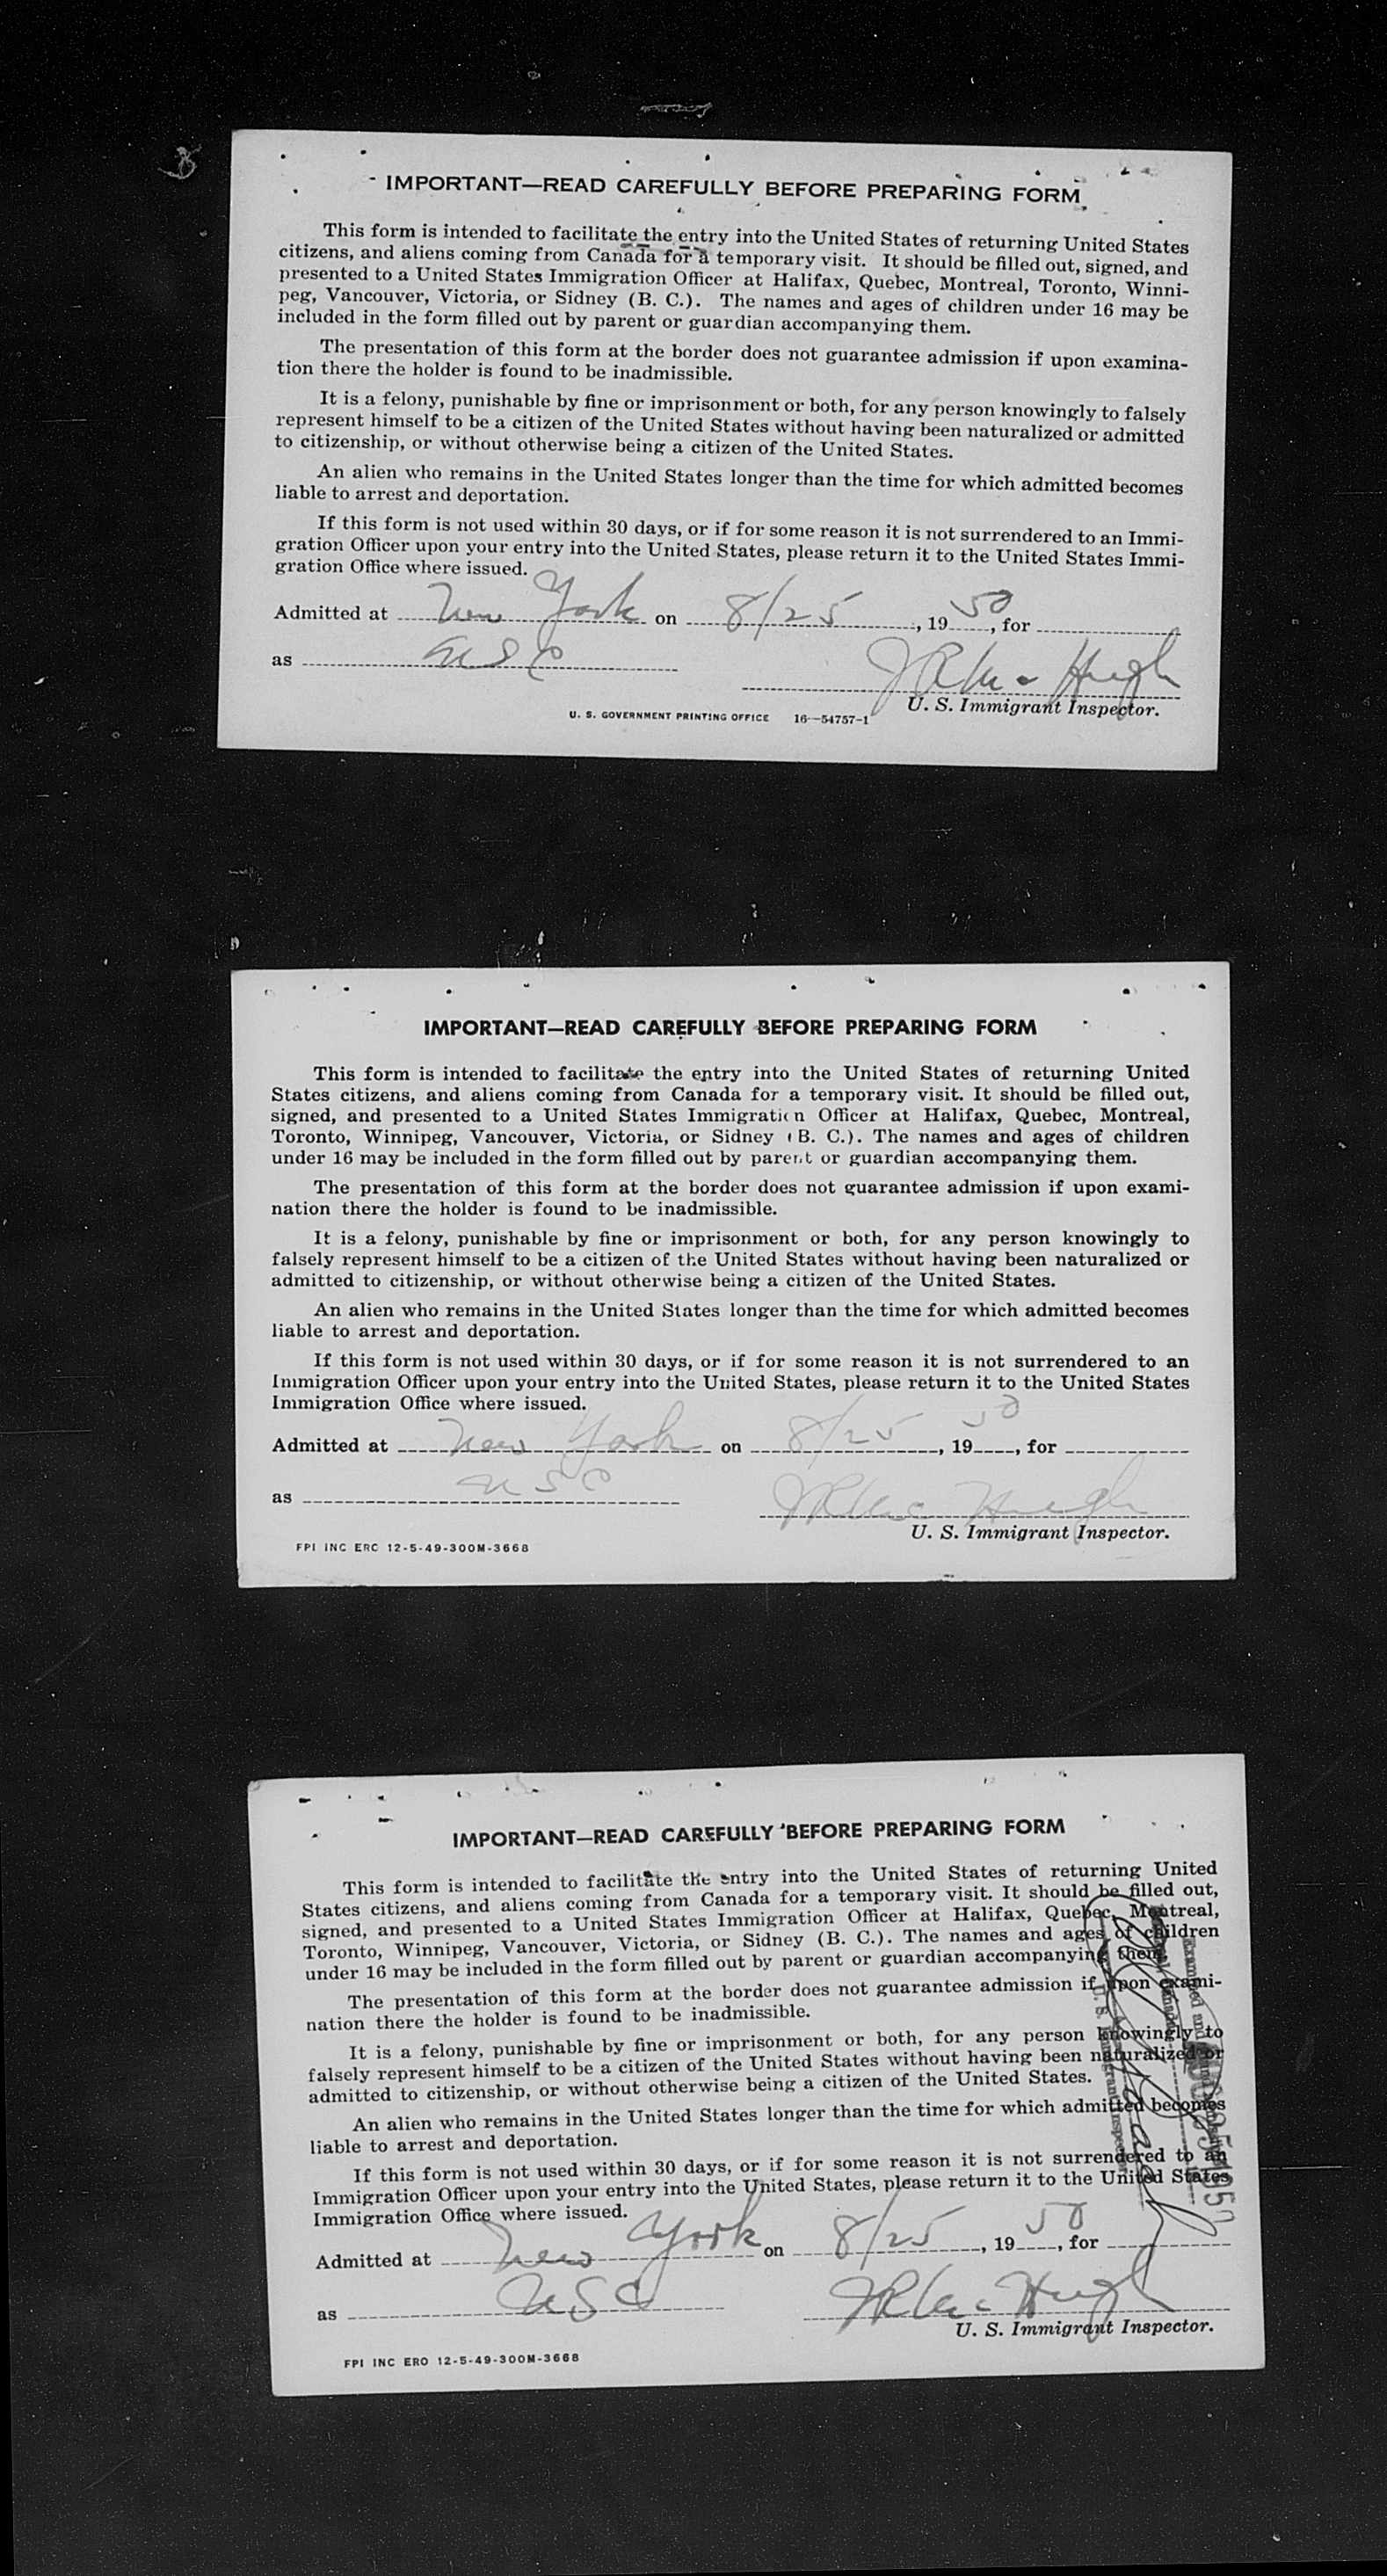 IMPORTANT—READ CAREFULLY BEFORE PREPARING FORM
This form is intended to facilitate the entry into the United States of returning United States
citizens, and aliens coming from Canada for a temporary visit. It should be filled out, signed, and
presented to a United States Immigration Officer at Halifax, Quebec, Montreal, Toronto, Winni-
peg, Vancouver, Victoria, or Sidney (B. C.). The names and ages of children under 16 may be
included in the form filled out by parent or guardian accompanying them.
The presentation of this form at the border does not guarantee admission if upon examina-
tion there the holder is found to be inadmissible.
It is a felony, punishable by fine or imprisonment or both, for any person knowingly to falsely
represent himself to be a citizen of the United States without having been naturalized or admitted
to citizenship, or without otherwise being a citizen of the United States.
An alien who remains in the United States longer than the time for which admitted becomes
liable to arrest and deportation.
If this form is not used within 30 days, or if for some reason it is not surrendered to an Immi-
gration Officer upon your entry into the United States, please return it to the United States Immi-
gration Office where issued.
Admitted at New York on 8/25, 1950, for
as USC
U. S. Immigrant Inspector.
U. S. GOVERNMENT PRINTING OFFICE 16—54757-1
IMPORTANT—READ CAREFULLY BEFORE PREPARING FORM
This form is intended to facilitate the entry into the United States of returning United
States citizens, and aliens coming from Canada for a temporary visit. It should be filled out,
signed, and presented to a United States Immigration Officer at Halifax, Quebec, Montreal,
Toronto, Winnipeg, Vancouver, Victoria, or Sidney (B. C.). The names and ages of children
under 16 may be included in the form filled out by parent or guardian accompanying them.
The presentation of this form at the border does not guarantee admission if upon exami-
nation there the holder is found to be inadmissible.
It is a felony, punishable by fine or imprisonment or both, for any person knowingly to
falsely represent himself to be a citizen of the United States without having been naturalized or
admitted to citizenship, or without otherwise being a citizen of the United States.
An alien who remains in the United States longer than the time for which admitted becomes
liable to arrest and deportation.
If this form is not used within 30 days, or if for some reason it is not surrendered to an
Immigration Officer upon your entry into the United States, please return it to the United States
Immigration Office where issued.
Admitted at New York on 8/25, 1950, for
as USC
U. S. Immigrant Inspector.
FPI INC ERC 12-5-49-300M-3668
IMPORTANT—READ CAREFULLY BEFORE PREPARING FORM
This form is intended to facilitate the entry into the United States of returning United
States citizens, and aliens coming from Canada for a temporary visit. It should be filled out,
signed, and presented to a United States Immigration Officer at Halifax, Quebec, Montreal,
Toronto, Winnipeg, Vancouver, Victoria, or Sidney (B. C.). The names and ages of children
under 16 may be included in the form filled out by parent or guardian accompanying them.
The presentation of this form at the border does not guarantee admission if upon exami-
nation there the holder is found to be inadmissible.
It is a felony, punishable by fine or imprisonment or both, for any person knowingly to
falsely represent himself to be a citizen of the United States without having been naturalized or
admitted to citizenship, or without otherwise being a citizen of the United States.
An alien who remains in the United States longer than the time for which admitted becomes
liable to arrest and deportation.
If this form is not used within 30 days, or if for some reason it is not surrendered to an
Immigration Officer upon your entry into the United States, please return it to the United States
Immigration Office where issued.
Admitted at New York on 8/25, 1950, for
as USC
U. S. Immigrant Inspector.
FPI INC ERO 12-5-49-300M-3668